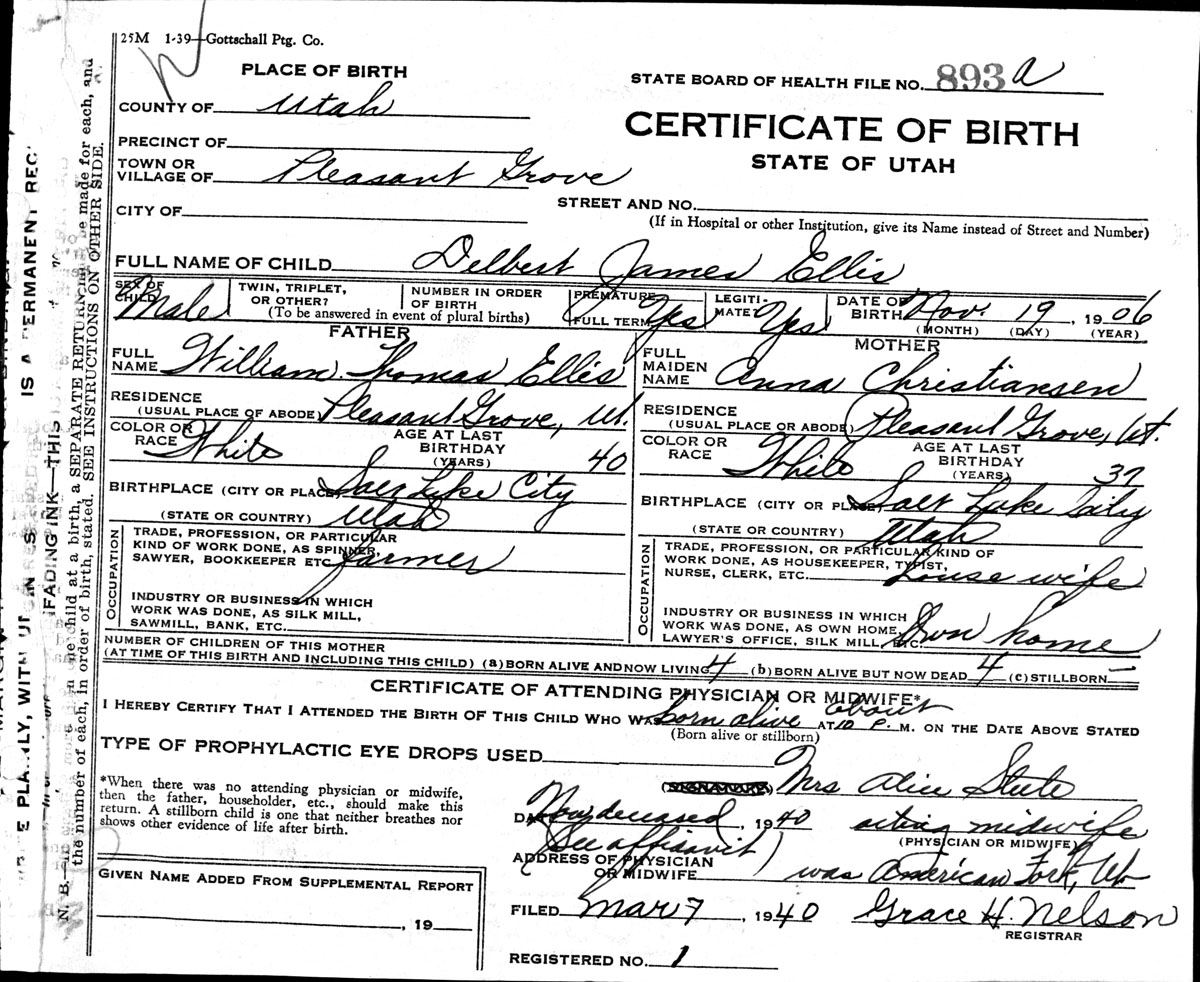 25M 1-39—Gottschall Ptg. Co.
PLACE OF BIRTH
STATE BOARD OF HEALTH FILE NO. 893 a
COUNTY OF Utah
CERTIFICATE OF BIRTH
STATE OF UTAH
PRECINCT OF
TOWN OR VILLAGE OF Pleasant Grove
CITY OF
STREET AND NO.
(If in Hospital or other Institution, give its Name instead of Street and Number)
FULL NAME OF CHILD Delbert James Ellis
SEX OF CHILD Male
TWIN, TRIPLET, OR OTHER?
NUMBER IN ORDER OF BIRTH
(To be answered in event of plural births)
PREMATURE
FULL TERM Yes
LEGITIMATE? Yes
DATE OF BIRTH Nov. 19, 1906
(MONTH) (DAY) (YEAR)
FATHER
FULL NAME William Thomas Ellis
RESIDENCE (USUAL PLACE OF ABODE) Pleasant Grove, Ut.
COLOR OR RACE White
AGE AT LAST BIRTHDAY (YEARS) 40
BIRTHPLACE (CITY OR PLACE) Salt Lake City
(STATE OR COUNTRY) Utah
OCCUPATION
TRADE, PROFESSION, OR PARTICULAR
KIND OF WORK DONE, AS SPINNER,
SAWYER, BOOKKEEPER ETC. farmer
INDUSTRY OR BUSINESS IN WHICH
WORK WAS DONE, AS SILK MILL,
SAWMILL, BANK, ETC.
MOTHER
FULL MAIDEN NAME Anna Christiansen
RESIDENCE (USUAL PLACE OR ABODE) Pleasant Grove, Ut.
COLOR OR RACE White
AGE AT LAST BIRTHDAY (YEARS) 37
BIRTHPLACE (CITY OR PLACE) Salt Lake City
(STATE OR COUNTRY) Utah
OCCUPATION
TRADE, PROFESSION, OR PARTICULAR KIND OF
WORK DONE, AS HOUSEKEEPER, TYPIST,
NURSE, CLERK, ETC. house wife
INDUSTRY OR BUSINESS IN WHICH
WORK WAS DONE, AS OWN HOME,
LAWYER'S OFFICE, SILK MILL, ETC. Own home
NUMBER OF CHILDREN OF THIS MOTHER
(AT TIME OF THIS BIRTH AND INCLUDING THIS CHILD) (a) BORN ALIVE AND NOW LIVING 4 (b) BORN ALIVE BUT NOW DEAD 4 (c) STILLBORN —
CERTIFICATE OF ATTENDING PHYSICIAN OR MIDWIFE*
I HEREBY CERTIFY THAT I ATTENDED THE BIRTH OF THIS CHILD WHO WAS born alive about AT 10 P. M. ON THE DATE ABOVE STATED
(Born alive or stillborn)
TYPE OF PROPHYLACTIC EYE DROPS USED
*When there was no attending physician or midwife,
then the father, householder, etc., should make this
return. A stillborn child is one that neither breathes nor
shows other evidence of life after birth.
(SIGNATURE) Mrs Alice
DATE Now deceased, 1940 acting midwife
(See affidavit) (PHYSICIAN OR MIDWIFE)
ADDRESS OF PHYSICIAN
OR MIDWIFE was American Fork, Ut
GIVEN NAME ADDED FROM SUPPLEMENTAL REPORT
, 19
FILED Mar 7, 1940 Grace H. Nelson
REGISTRAR
REGISTERED NO. 1
child at a birth, a SEPARATE RETURN be made for each, and
the number of each, in order of birth, stated. SEE INSTRUCTIONS ON OTHER SIDE.
N. B.
FADING INK—THIS IS A PERMANENT